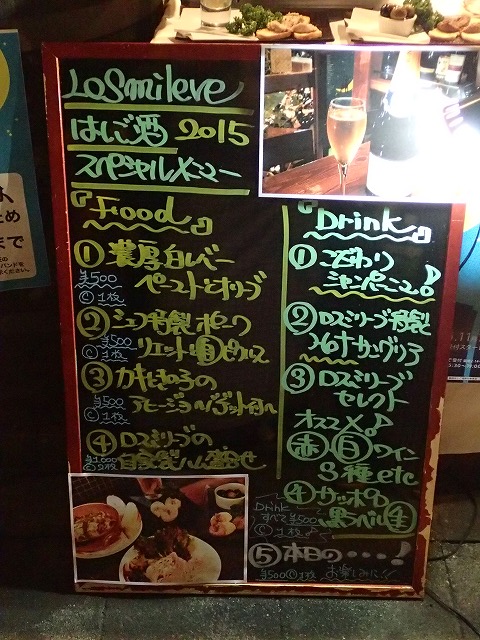 LoSmileve
はしご酒 2015
スペシャルメニュー
『Food』
① 濃厚白レバー
ペーストとオリーブ
¥500
Ⓒ1枚
② シェフ特製 ポーク
リエットと自家ピクルス
¥500
Ⓒ1枚
③ カキときのこの
アヒージョ バゲット付
¥500
Ⓒ1枚
④ ロスミリーブの
自家製ハム盛合せ
¥1,000
Ⓒ2枚
『Drink』
① こだわり
シャンパーニュ。♪
② ロスミリーブ特製
サングリア
③ ロスミリーブ
セレクト
オススメ♪
赤 白 ワイン
3種 etc
④ サッポロ
黒ラベル 生
Drink
すべて¥500
⑤ 本日の・・・!
¥500 Ⓒ1枚 お楽しみに!!